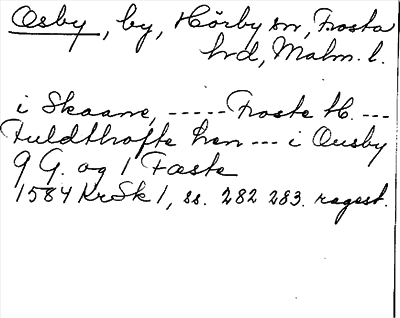 Osby, by, Hörby sn, Frosta
hrd, Malm. l.
i Skaane, ----- Froste H. ---
Fuldthofte hen --- i Ousby
9 G. og 1 Fæste
1584 KrSk 1, ss. 282 283. regest.